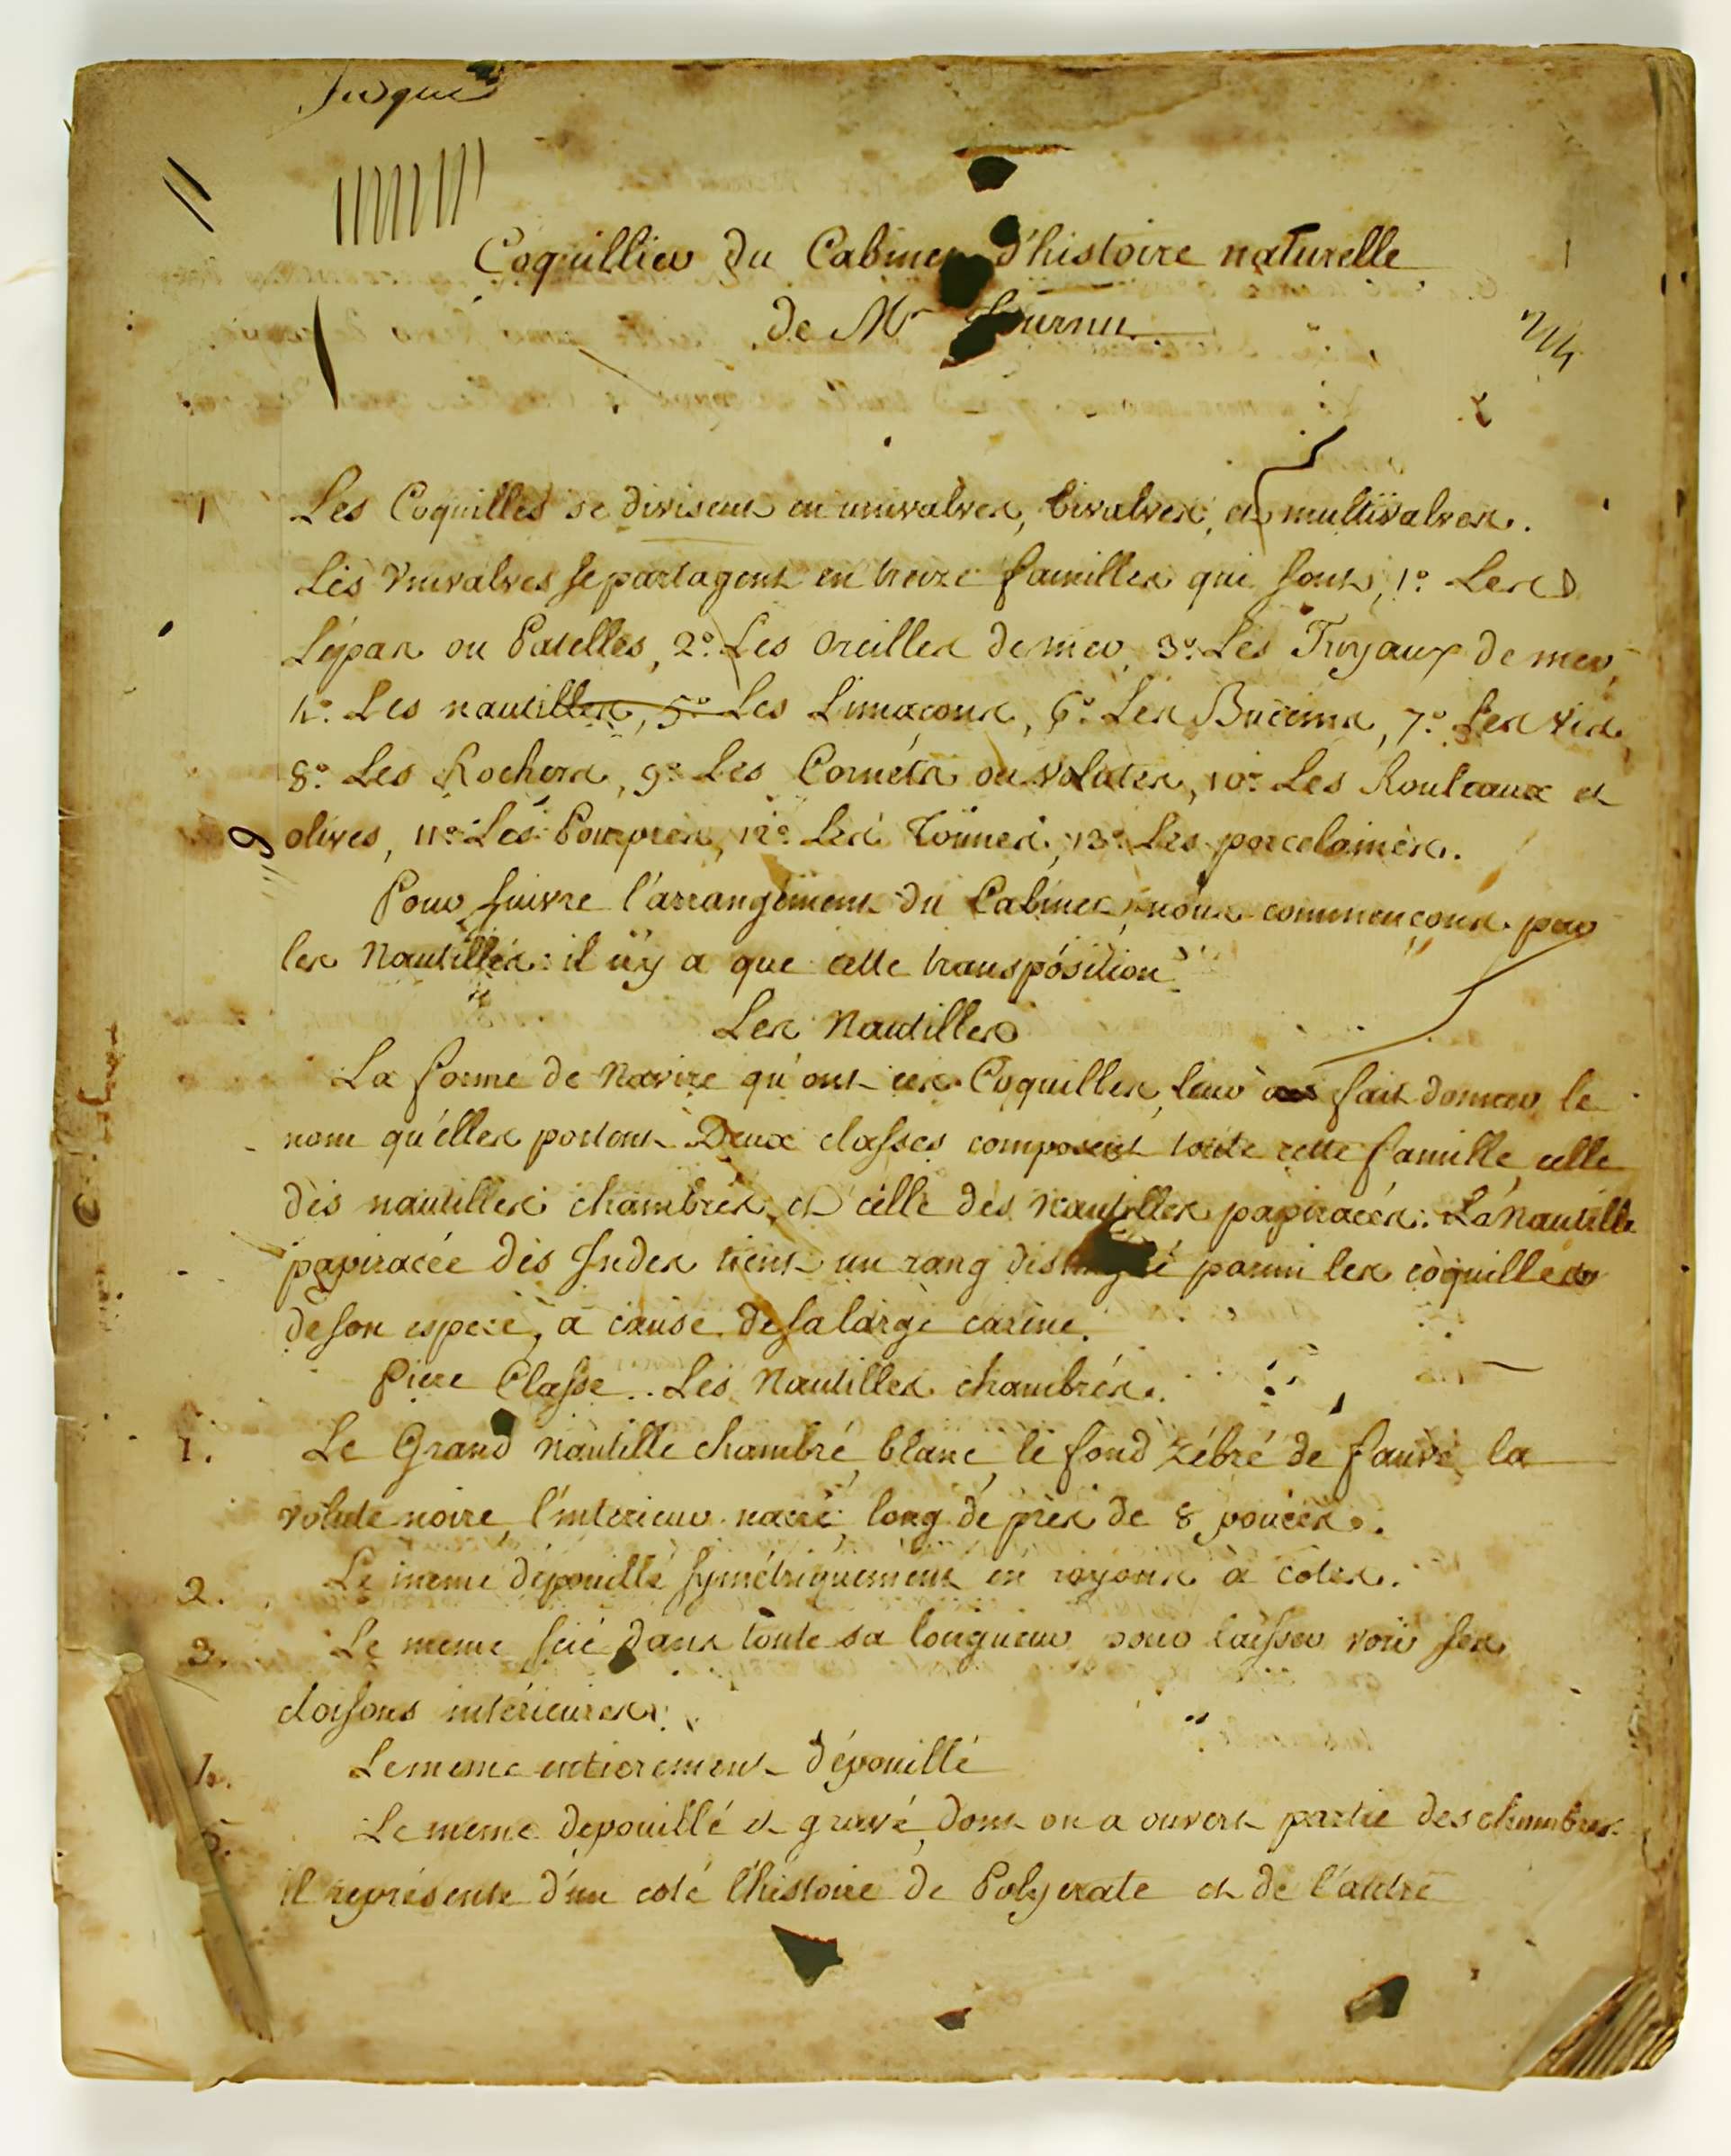 Jusque
Coquillier du Cabinet d'histoire naturelle
de Mr Fournu
1 Les Coquilles se divisent en univalves, bivalves, et multivalves.
Les Univalves se partagent en treize familles qui sont, 1º. Les
Lépas ou Patelles, 2º. Les Oreilles de mer, 3º. Les Tuyaux de mer,
4º. Les nautilles, 5º. Les Limaçons, 6º. Les Buccins, 7º. Les Vis,
8º. Les Rochers, 9º. Les Cornéts ou Volutes, 10º. Les Rouleaux et
olives, 11º. Les Pourpres, 12º. Les Tonnes, 13º. Les porcelaines.
Pour suivre l'arrangement du Cabinet, nous commençons par
les Nautilles: il n'y a que cette transposition.
Les Nautilles
La forme de Navire qu'ont ces Coquilles, leur a fait donner le
nom qu'elles portent. Deux classes composent toute cette famille, celle
des nautilles chambrés, et celle des Nautilles papiracés. La Nautille
papiracée des Indes tient un rang distingué parmi les coquilles
de son espece, à cause de sa large carène.
Piere Classe.. Les Nautilles chambrés.
1. Le Grand Nautille chambré, blanc, le fond zébré de fauve, la
volute noire, l'interieur nacré, long de près de 8 pouces.
2. Le meme dépouillé symétriquement en rayons à cotes.
3. Le meme scié dans toute sa longueur pour laisser voir ses
cloisons intérieures.
4. Le meme entierement dépouillé
5. Le meme depouillé et gravé, dont on a ouvert partie des chambres.
il représente d'un coté l'histoire de Polycrate et de l'autre